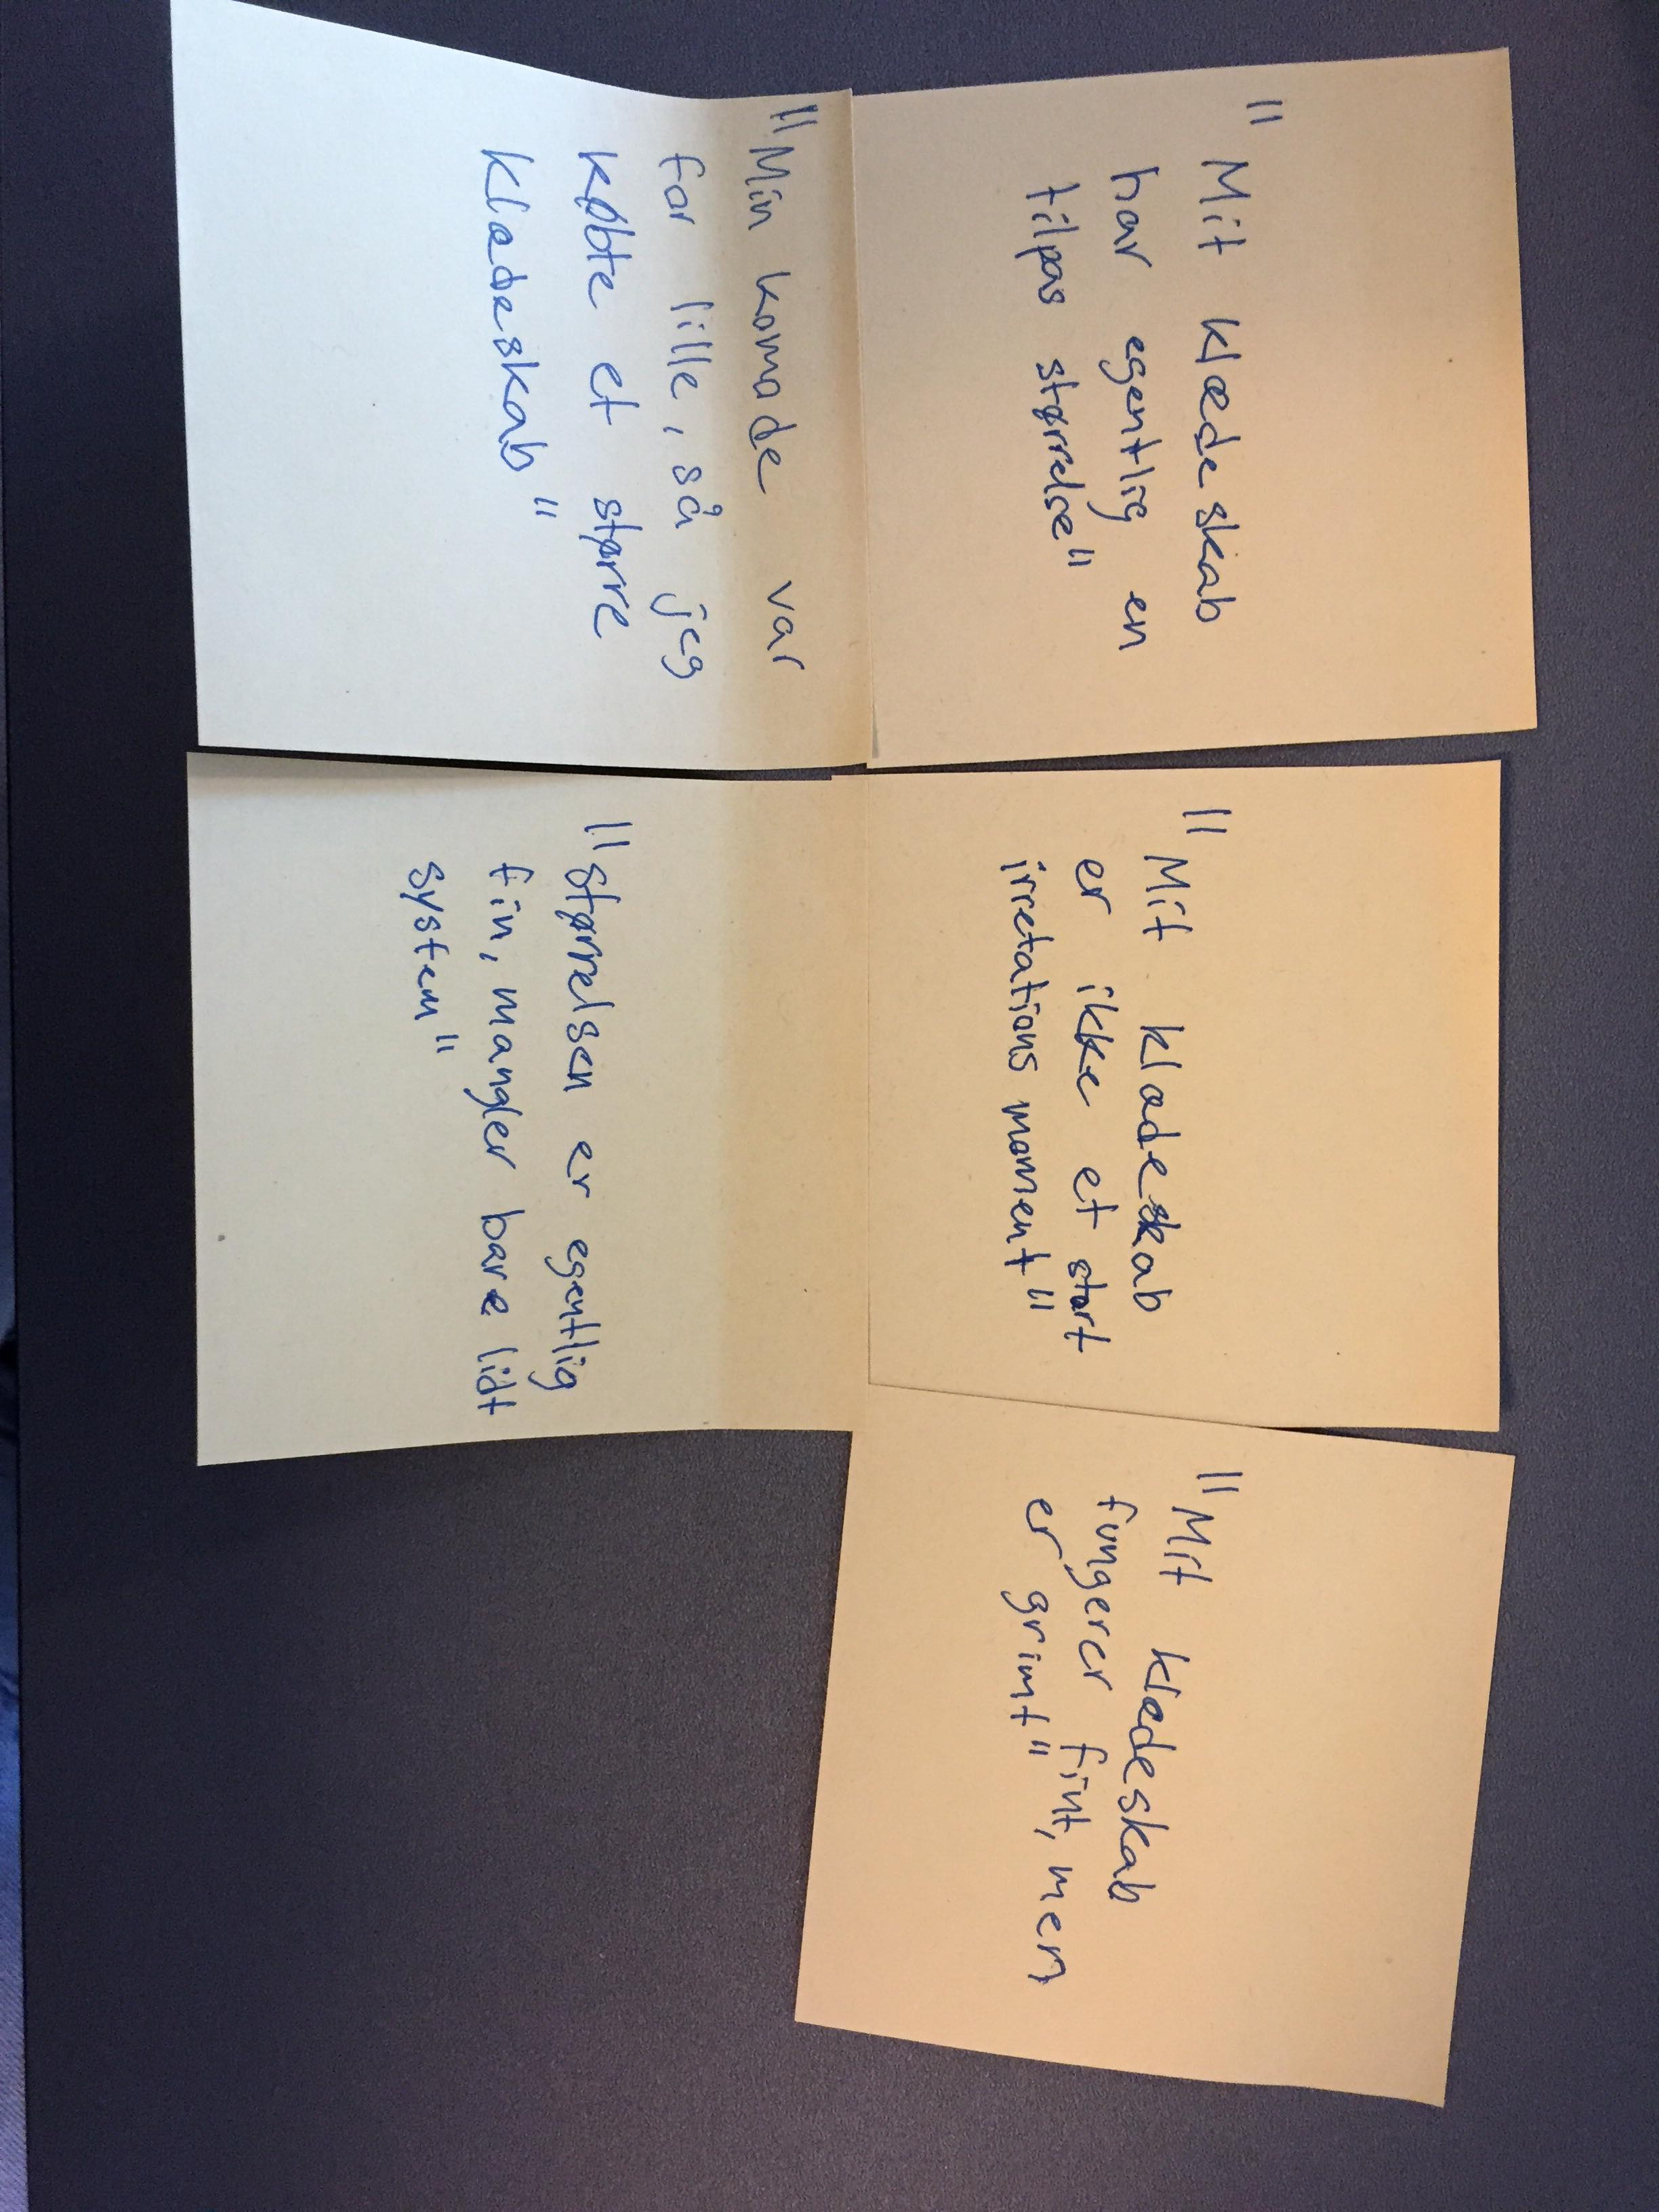 "Mit klædeskab
har egentlig en
tilpas størrelse"
"Mit klædeskab
er ikke et stort
irretations moment"
"Mit klædeskab
fungerer fint, men
er grimt"
"Min komode var
for lille, så jeg
købte et større
klædeskab"
"størrelsen er egentlig
fin, mangler bare lidt
system"